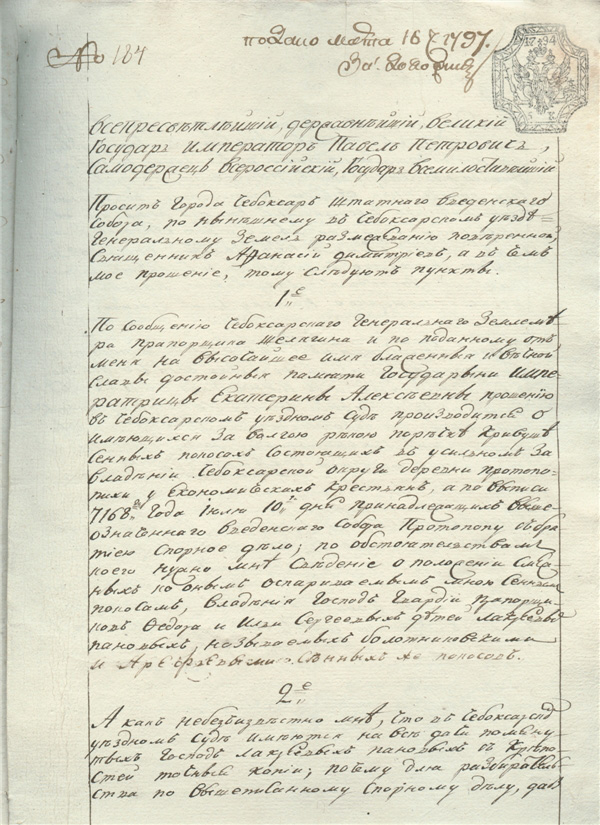 № 184
подано марта 16 г 1797.
1794
Всепресвѣтлѣйшій, державнѣйшій, великій
Государь Императоръ Павелъ Петровичъ,
Самодержецъ Всероссійскій, Государь Всемилостивѣйшій
Проситъ Города Чебоксаръ штатнаго Введенскаго
Собора, по нынѣшнему въ Чебоксарскомъ уѣздѣ
Генеральному Земель размежеванію повѣренной,
Священникъ Афанасій Димитріевъ, а въ чемъ
мое прошеніе, тому слѣдуютъ пункты.
1е
По сообщенію Чебоксарскаго Генеральнаго Землемѣ
ра прапорщика и по поданному отъ
меня на Высочайшее имя блаженныя и вѣчной
славы достойныя памяти Государыни Импе-
ратрицы Екатерины Алексѣевны прошенію
въ Чебоксарскомъ уѣздномъ Судѣ производится о
имѣющихся за Волгою рѣкою по рѣчкѣ Кривушѣ
Сенныхъ покосахъ состоящихъ въ усильномъ за
владѣніи Чебоксарской округи деревни Протопо-
пихи у Економическихъ Крестьянъ, а по выписи
7168 года Іюля 10 дня принадлежащихъ выше
означеннаго Введенскаго Собора Протопопу съ бра
тіею Спорное дѣло; по обстоятельствамъ
коего нужно мнѣ Свѣденіе о положеніи Смѣж
ныхъ ко онымъ оспориваемымъ мною Сеннымъ
покосамъ, Владѣнія Господъ Гвардіи Прапорщи
ковъ Федора и Ильи Сергеевыхъ дѣтей
пановыхъ, называемыхъ Болотниковскими
и Арефьевыми Сѣнныхъ же покосовъ.
2е
А какъ небезъизвѣстно мнѣ, что въ Чебоксарскомъ
уѣздномъ Судѣ имѣются на всѣ дачи помяну
тыхъ Господъ пановыхъ съ Крѣпо
стей точныя копіи; по чему для разбиратель
ства по вышеписанному Спорному дѣлу, даб